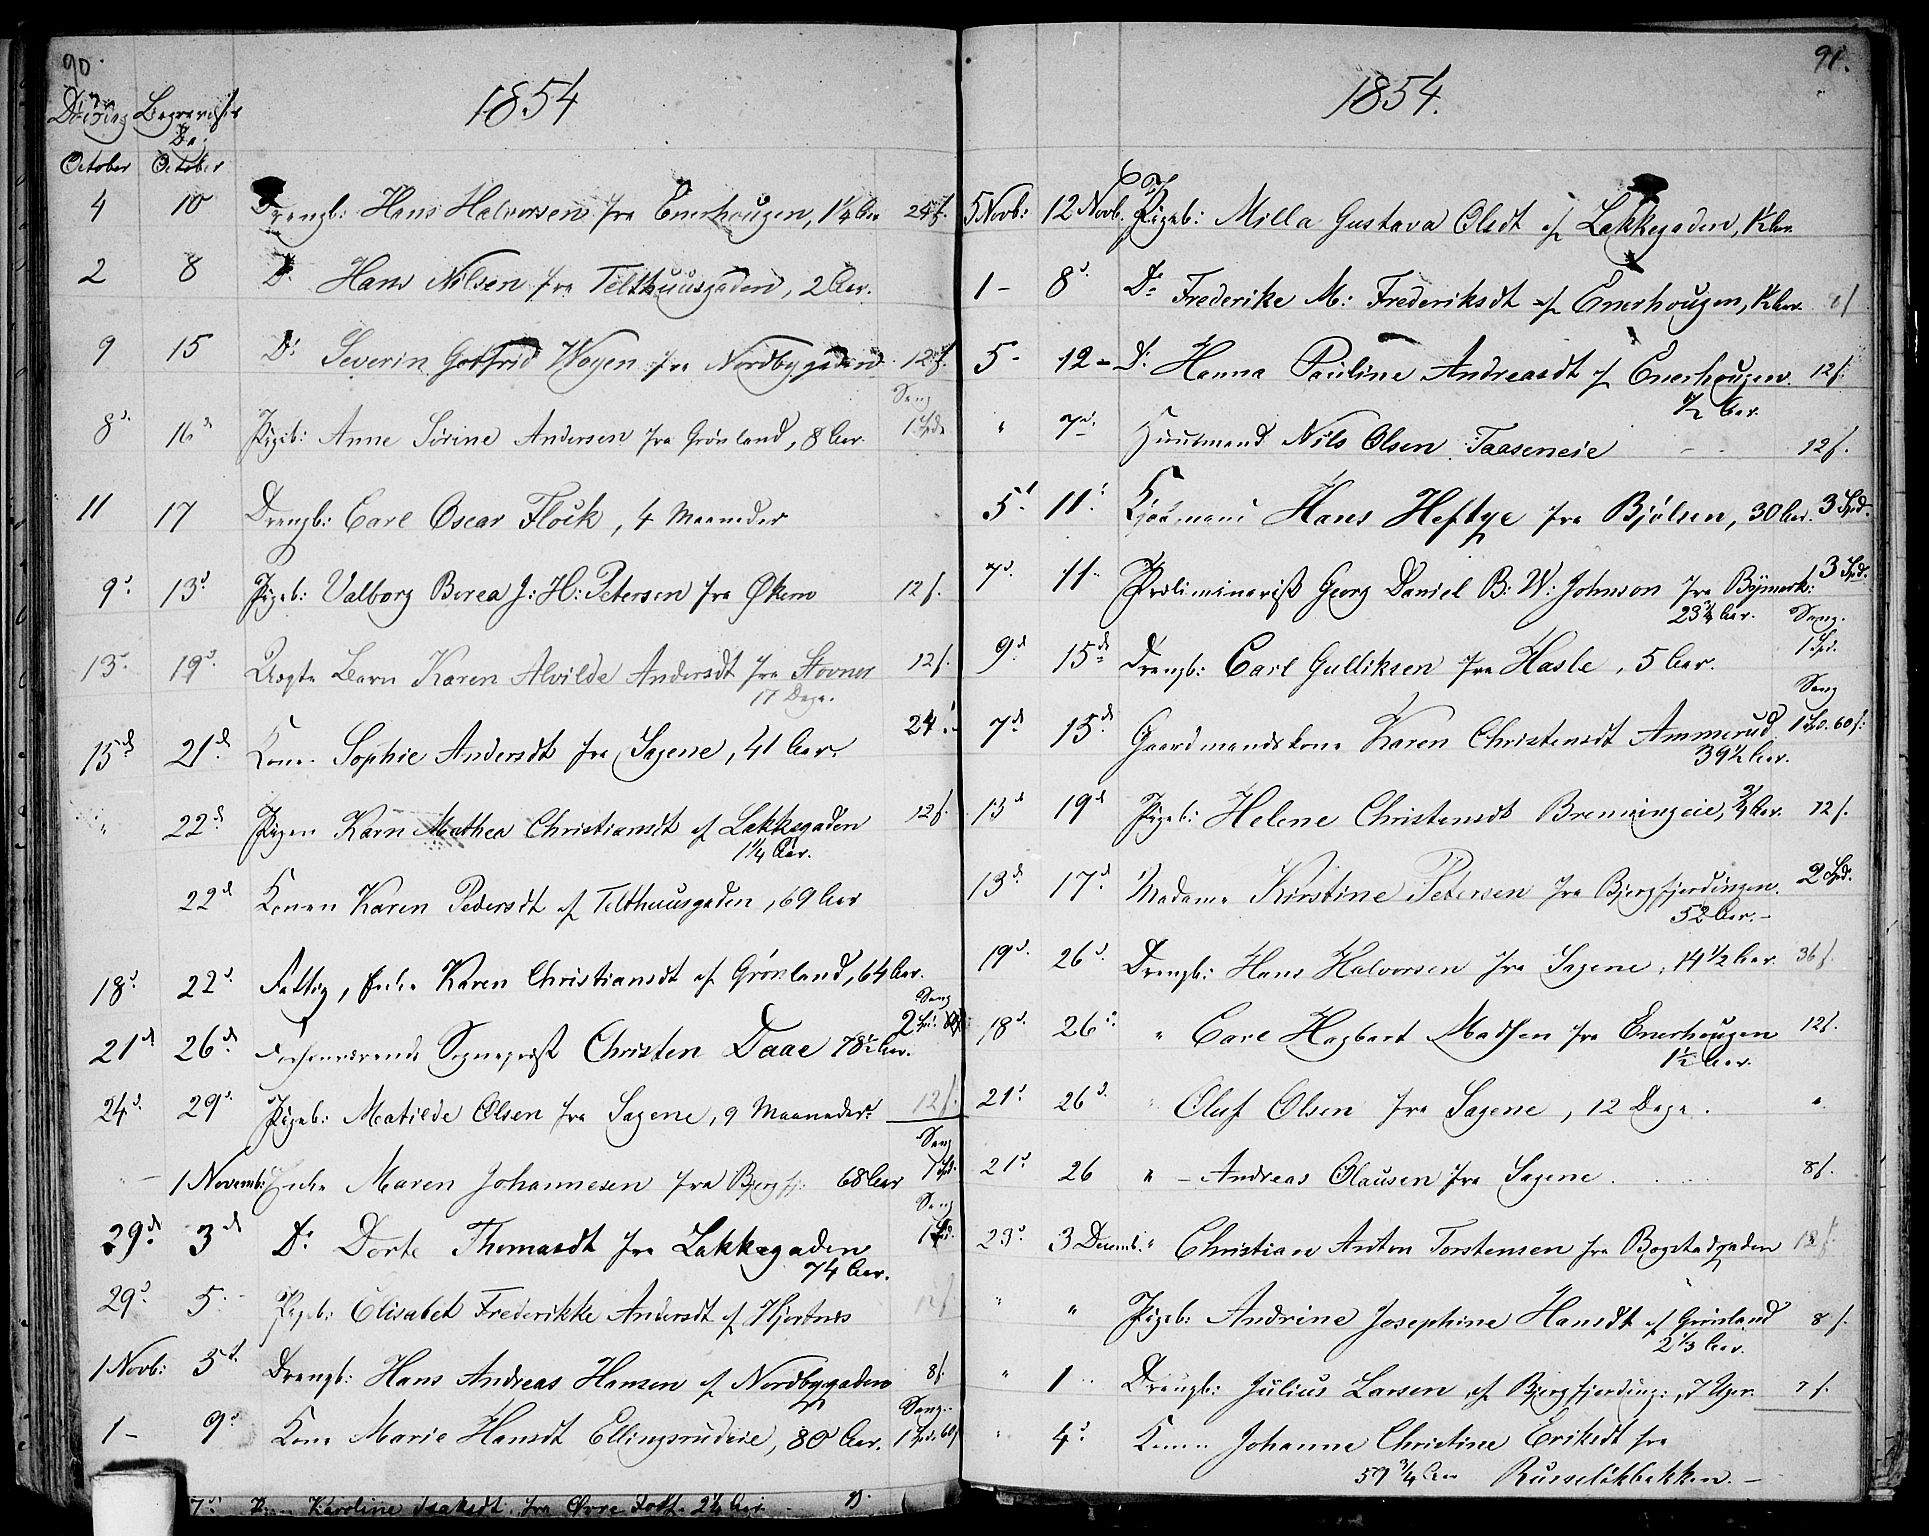 90.
1854
Dødsdag Begravelses
Dag
October October
4 10 Drengb: Hans Halvorsen fra Enerhougen, 1 1/4 Aar 24 s.
2 8 Do Hans Nilsen fra Telthuusgaden, 2 Aar.
9 15 Do Severin Gotfrid Woyen fra Nordbygaden 12 s.
Sang
8 16 Pigeb: Anne Sirine Andersen fra Grønland, 8 Aar. 1 Spd.
11 17 Drengb: Carl Oscar Flock, 4 Maaneder
9 13 Pigeb: Valborg Borea J: H: Petersen fra Økern 12 s.
13 19 Uægte Barn Karen Alvilde Andersdt fra Stovner 12 s.
17 Dage.
15 21 Kone Sophie Andersdt fra Sagene, 41 Aar. 24
" 22 Pigen Karn Mathea Christiansdt af Lakkegaden 12 s.
1 1/4 Aar.
22 Konen Karen Pedersdt af Telthuusgaden, 69 Aar
18 22 Fattig, Enke Karen Christiansdt af Grønland, 64 Aar.
Sang
21 26 Forhenværende Sognepræst Christen Daae 78 1/2 Aar. 2 Spd.
24 29 Pigeb: Matilde Olsen fra Sagene, 9 Maaneder. 12 s.
Sang
1 Novemb: Enke Maren Johannesen fra Bjergfj: 68 Aar 1 Spd.
Sang
29 3 Do Dorte Thomasdt fra Lakkegaden 1 Spd.
74 Aar.
29 5 Pigeb: Elisabet Frederikke Andersdt af Hjortnes 12 s.
1 Novb: 5 Drengb: Hans Andreas Hansen af Nordbygaden 8 s.
Sang
1 - 9 Kone Marie Hansdt Ellingsrudeie, 80 Aar. 1 Spd. 60
7 Karoline Isaksdt. fra Øvre Foss. 2 1/2 Aar.
91.
1854.
5 Novb: 12 Novb. Pigeb: Milla Gustava Olsdt af Lakkegaden, 1/2 Aar.
1 - 8 Do Frederike M: Frederiksdt af Enerhougen, 1/2 Aar. 8 s
5 - 12 - Do Hanna Pauline Andreasdt af Enerhougen 12 s.
1/2 Aar.
" 7 Huusmand Nils Olsen Taaseneie 12 s.
5 11 Kjøbmand Hans Heftye fra Bjølsen, 30 Aar. 3 Spd.
7 11 Præliminarist Georg Daniel B: W: Johnson fra Bymark: 3 Spd.
23 3/4 Aar. Sang.
9 15 Drengb: Carl Gulliksen fra Hasle, 5 Aar. 1 Spd.
Sang
7 15 Gaardmandskone Karen Christensdt Ammerud 1 Spd. 60 s.
39 1/2 Aar.
13 19 Pigeb: Helene Christensdt Brenningeie, 3/4 Aar. 12 s.
13 17 Madame Kirstine Petersen fra Bjergfjerdingen. 2 Spd.
52 Aar. -
19 26 Drengb: Hans Halvorsen fra Sagene, 14 1/2 Aar. 36 s.
18 26 " Carl Hagbart Madsen fra Enerhougen 12 s.
1 1/2 Aar.
21 26 " Oluf Olsen fra Sagene, 12 Dage. "
21 26 " - Andreas Olausen fra Sagene 8 s.
23 3 Decemb. " Christian Anton Torstensen fra Bogstadgaden 12 s.
" " Pigeb: Andrine Josephine Hansdt af Grønland 8 s.
2 1/3 Aar.
" 1 Drengb: Julius Larsen af Bjergfjerding:, 7 Uger. 7 s.
" 4 Konen Johanne Christine Eriksdt fra
59 3/4 Aar Russeløkbakken. -